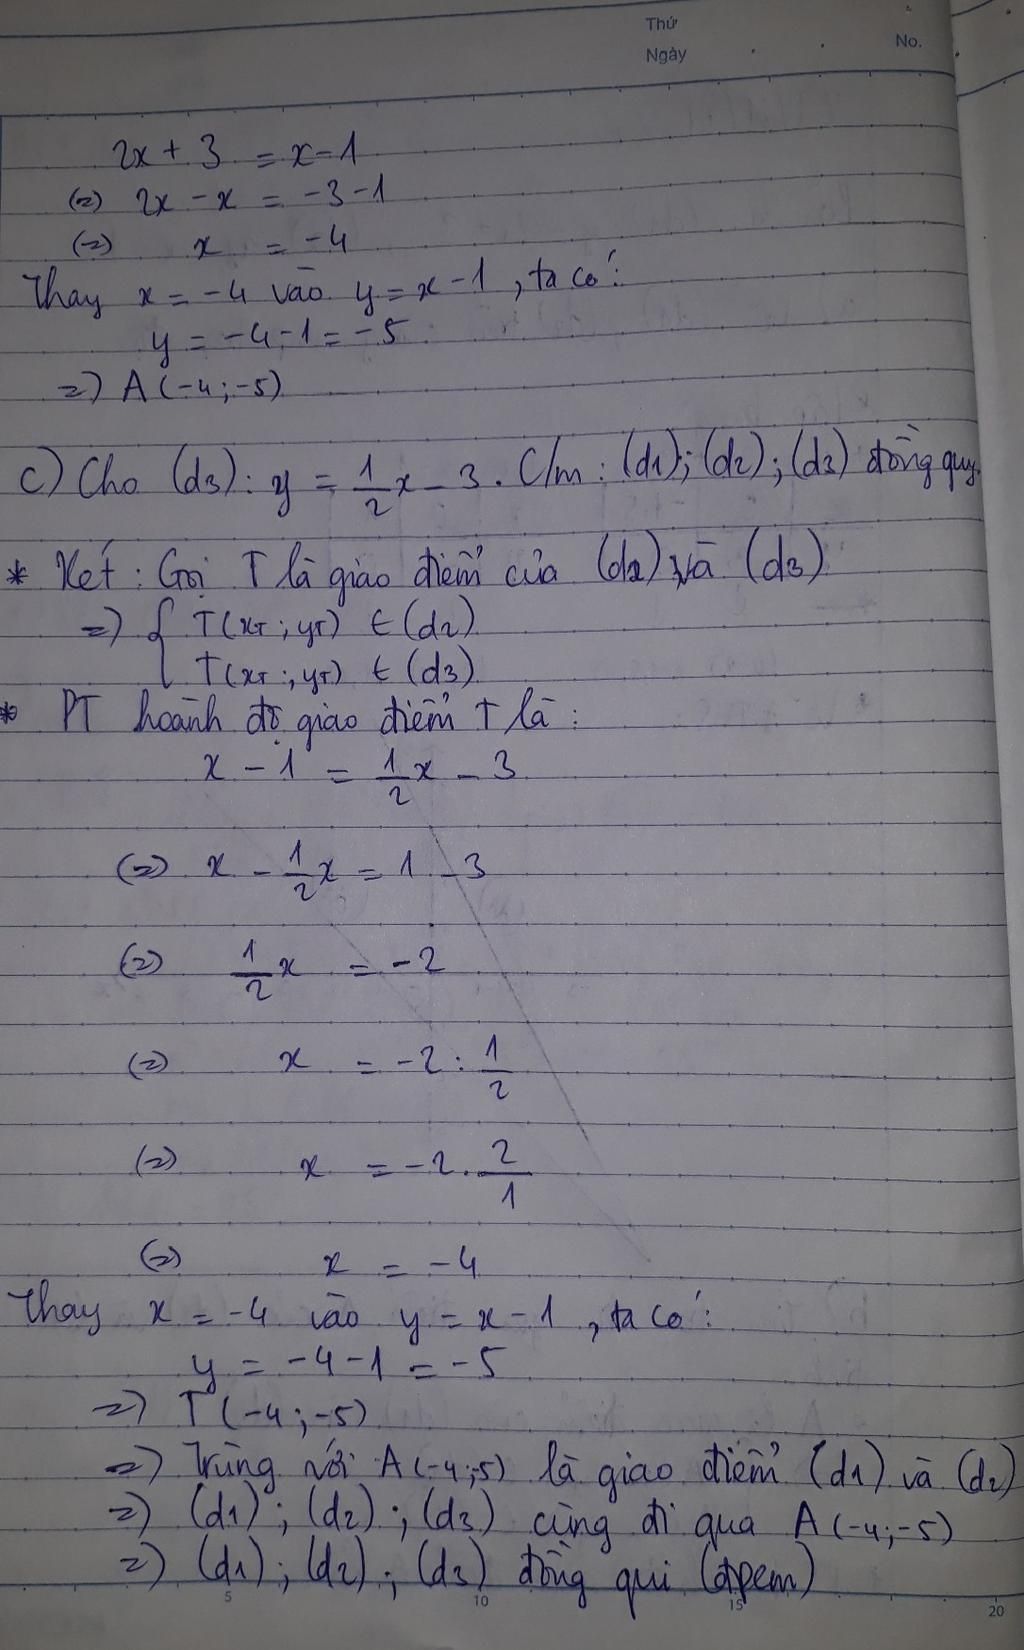 Thứ
Ngày
No.
2x + 3 = x - 1
(=) 2x - x = -3 - 1
(=) x = -4
Thay x = -4 vào y = x - 1, ta có:
y = -4 - 1 = -5
=) A(-4; -5)
c) Cho (d3): y = 1/2x - 3. C/m: (d1); (d2); (d3) đồng quy.
* Xét: Gọi T là giao điểm của (d2) và (d3)
=) { T(xT; yT) ∈ (d2)
T(xT; yT) ∈ (d3)
* PT hoành độ giao điểm T là:
x - 1 = 1/2x - 3
(=) x - 1/2x = 1 - 3
(=) 1/2x = -2
(=) x = -2 : 1/2
(=) x = -2 . 2/1
(=) x = -4
Thay x = -4 vào y = x - 1, ta có:
y = -4 - 1 = -5
=) T(-4; -5)
=) Trùng với A(-4; -5) là giao điểm (d1) và (d2)
=) (d1); (d2); (d3) cùng đi qua A(-4; -5)
=) (d1); (d2); (d3) đồng qui (đpcm)
5 10 15 20